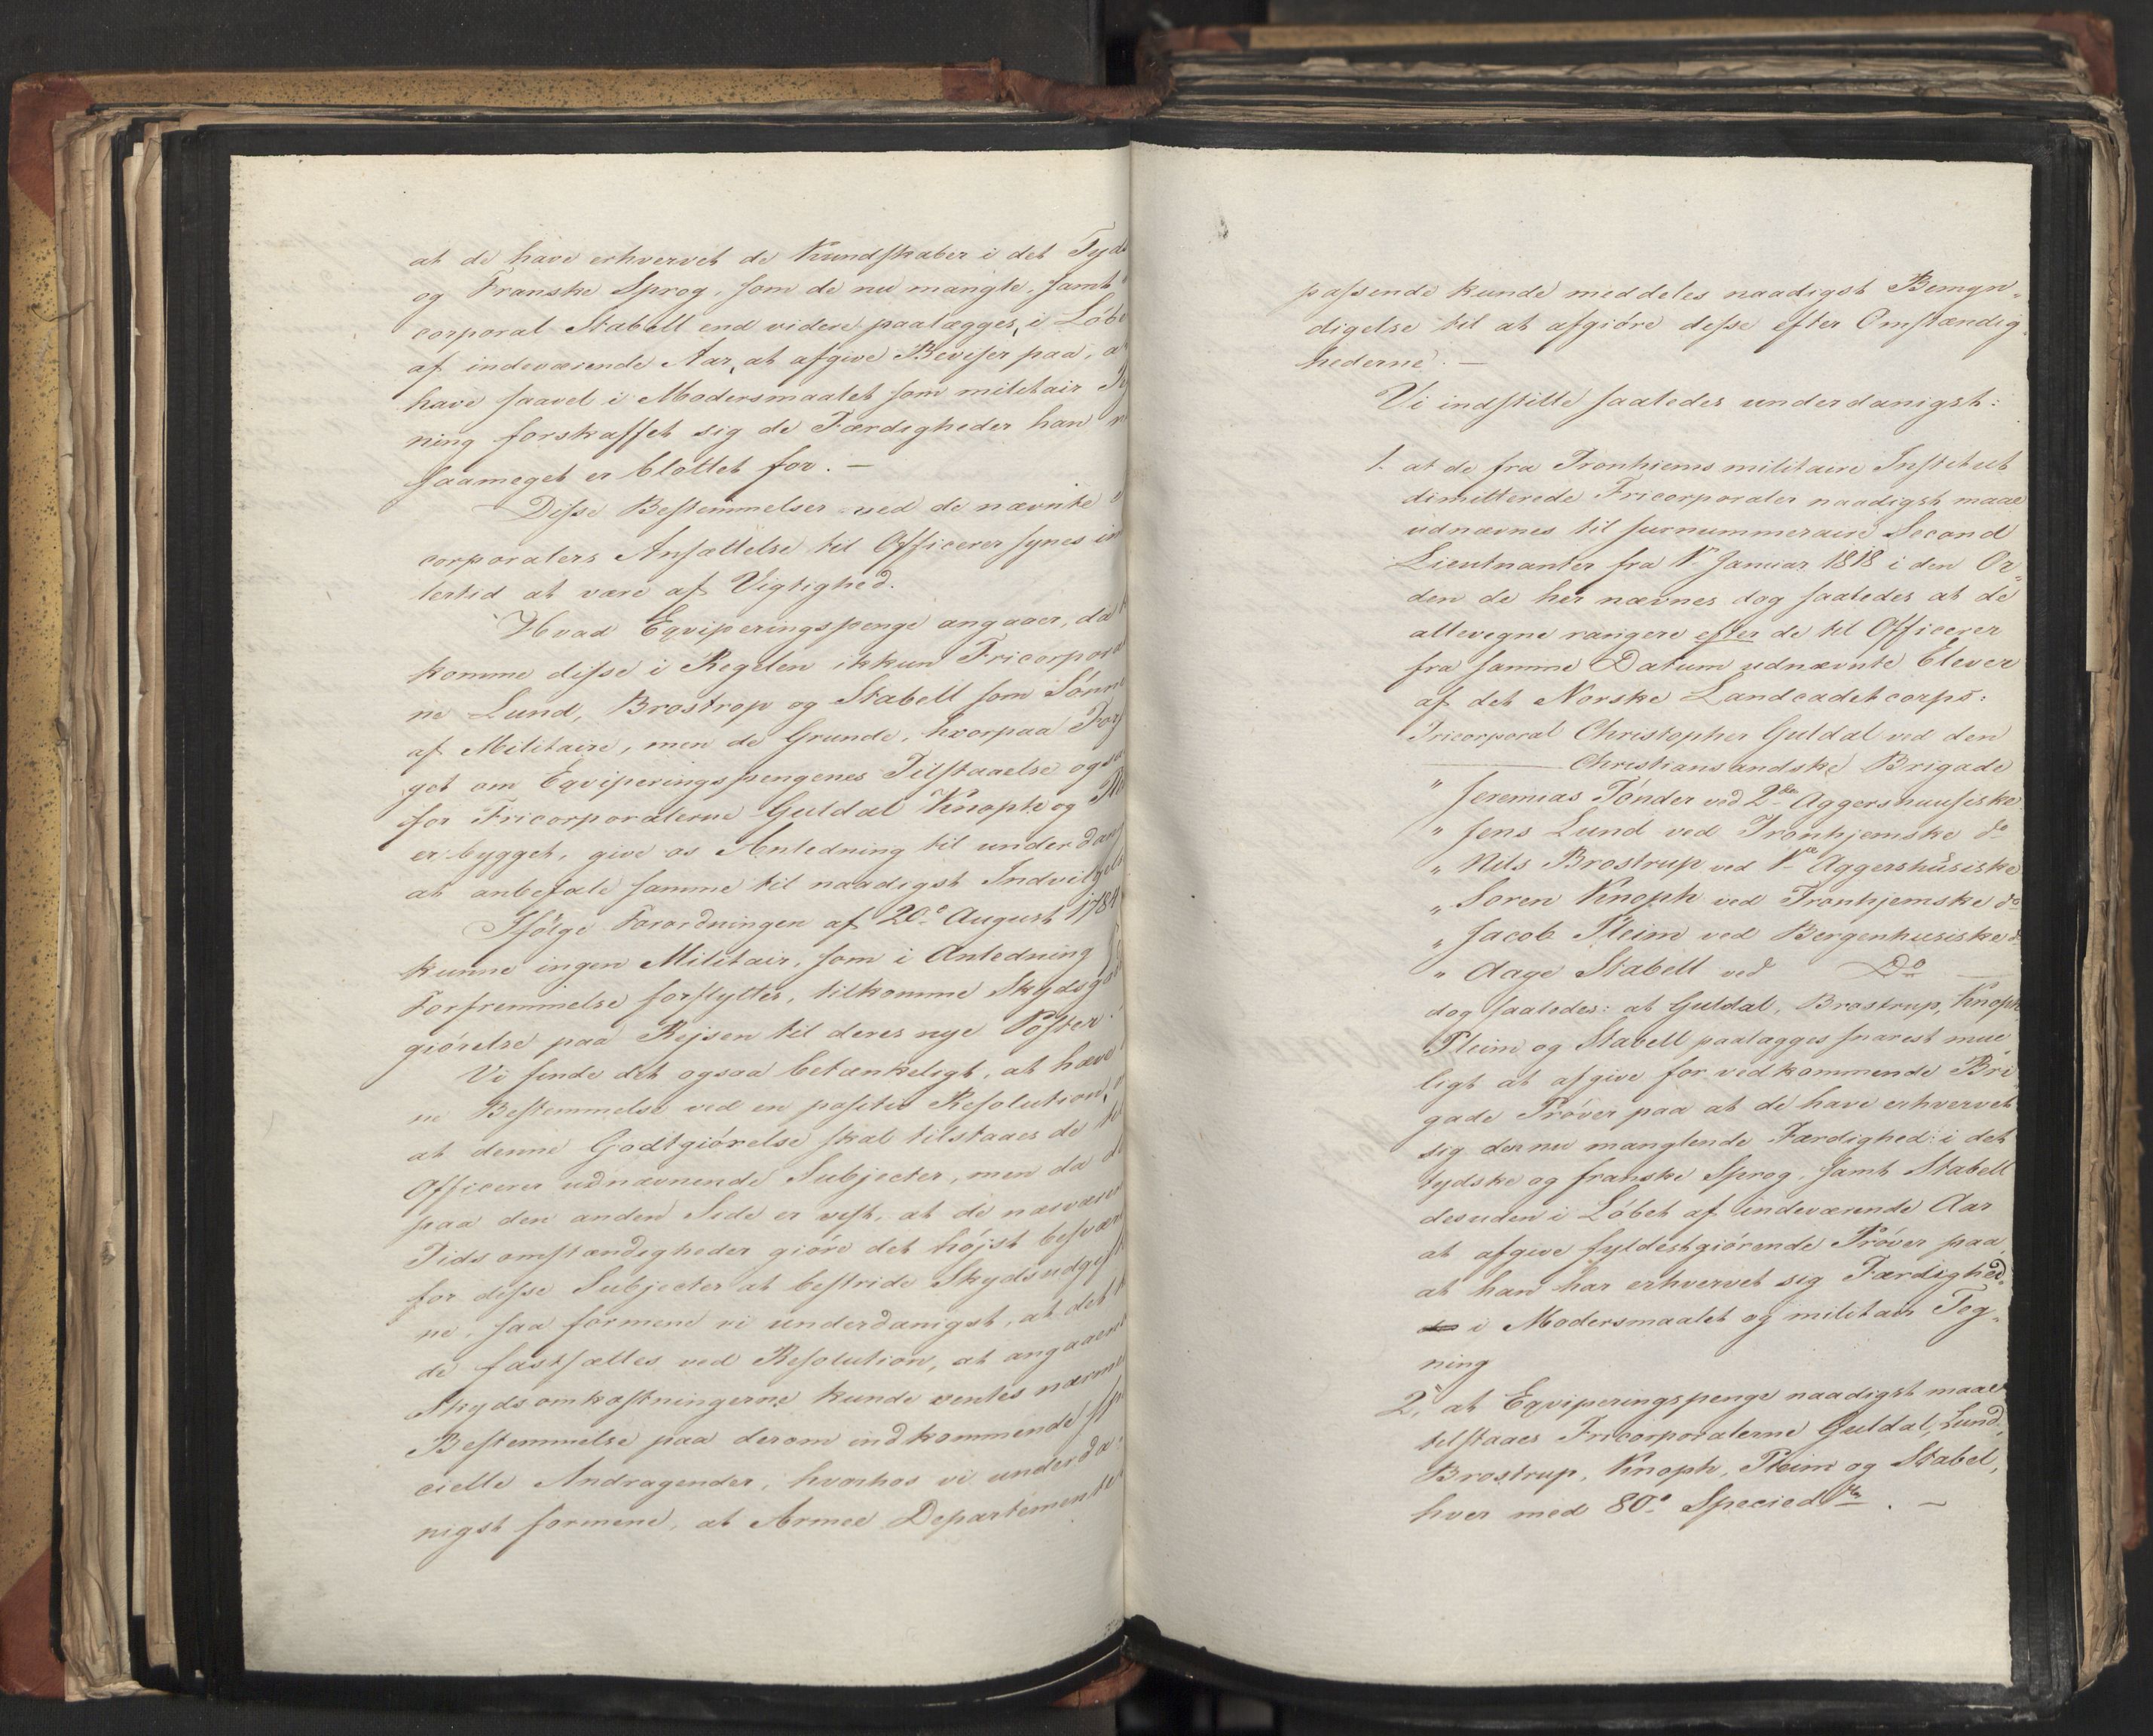 at de have erhvervet de Kundskaber i det Tyds
og Franske Sprog, som de nu mangle, samt
corporal Stabell end videre paalægges, i Løbe
af indeværende Aar, at afgive Beviser paa, at
have saavel i Modersmaalet som militair Teg
ning forskaffet sig de Færdigheder han n
saameget er blottet for. —
Disse Bestemmelser ved de nævnte
corporalers Ansættelse til Officerer synes im
lertid at være af Vigtighed.
Hvad Eqviperingspenge angaaer, da
komme disse i Regelen ikkun Fricorpora
ne Lund, Brostrop og Stabell som Sønne
af Militaire, men de Grunde, hvorpaa Fors
get om Eqviperingspengenes Tilstaaelse ogsa
for Fricorporalerne Guldal Knophe og Ple
er bygget, give os Anledning til underdan
at anbefale samme til naadigst Indvilgels
Ifølge Forordningen af 20de August 1784
kunne ingen Militair, som i Anledning
Forfremmelse forflyttes, tilkomme Skydsgo
giørelse paa Rejsen til deres nye Poster.
Vi finde det ogsaa betænkeligt, at hæve
ne Bestemmelse ved en positiv Resolution,
at denne Godtgiørelse skal tilstaaes de til
Officerer udnævnende Subjecter, men da de
paa den anden Side er vist, at de nærvær
Tidsomstændigheder giøre det højst besvær
for disse Subjecter at bestride Skydsudgif
ne, saa formene vi underdanigst, at det
de fastsættes ved Resolution, at angaaend
Skydsomkostningerne kunde ventes nærme
Bestemmelse paa derom indkommende spe
cielle Andragender, hvorhos vi underda
nigst formene, at Armee Departementet
passende kunde meddeles naadigst Bemyn„
digelse til at afgiøre disse efter Omstændig„
hederne. —
Vi indstille saaledes underdanigst:
1. at de fra Tronhiems militaire Institut
dimitterede Fricorporaler naadigst maae
udnævnes til surnummeraire Second
Lieutnanter fra 1te Januar 1818 i den Or„
den de her nævnes dog saaledes at de
allevegne rangere efter de til Officerer
fra samme Datum udnævnte Elever
af det Norske Landcadetcorps:
Fricorporal Christopher Guldal ved den
Christiansandske Brigade
" Jeremias Tønder ved 2den Aggershuusiske
" Jens Lund ved Tronhjemske do
" Nils Brostrup ved 1ste Aggershusiske
" Soren Knoph ved Tronhjemske do
" Jacob Pleim ved Bergenhusiske do
" Aage Stabell ved Do —
dog saaledes: at Guldal, Brostrup, Knoph
Pleim og Stabell paalægges snarest mue„
ligt at afgive for vedkommende Bri
gade Prøver paa at de have erhvervet
sig den nu manglende Færdighed i det
tydske og franske Sprog, samt Stabell
desuden i Løbet af indeværende Aar
at afgive fyldestgiørende Prøver paa
at han har erhvervet sig Færdighed
i Modersmaalet og militair Teg„
ning
2, at Eqviperingspenge naadigst maae
tilstaaes Fricorporalerne Guldal, Lund,
Brostrup, Knoph, Pleim og Stabel,
hver med 80de Speciedlr. —